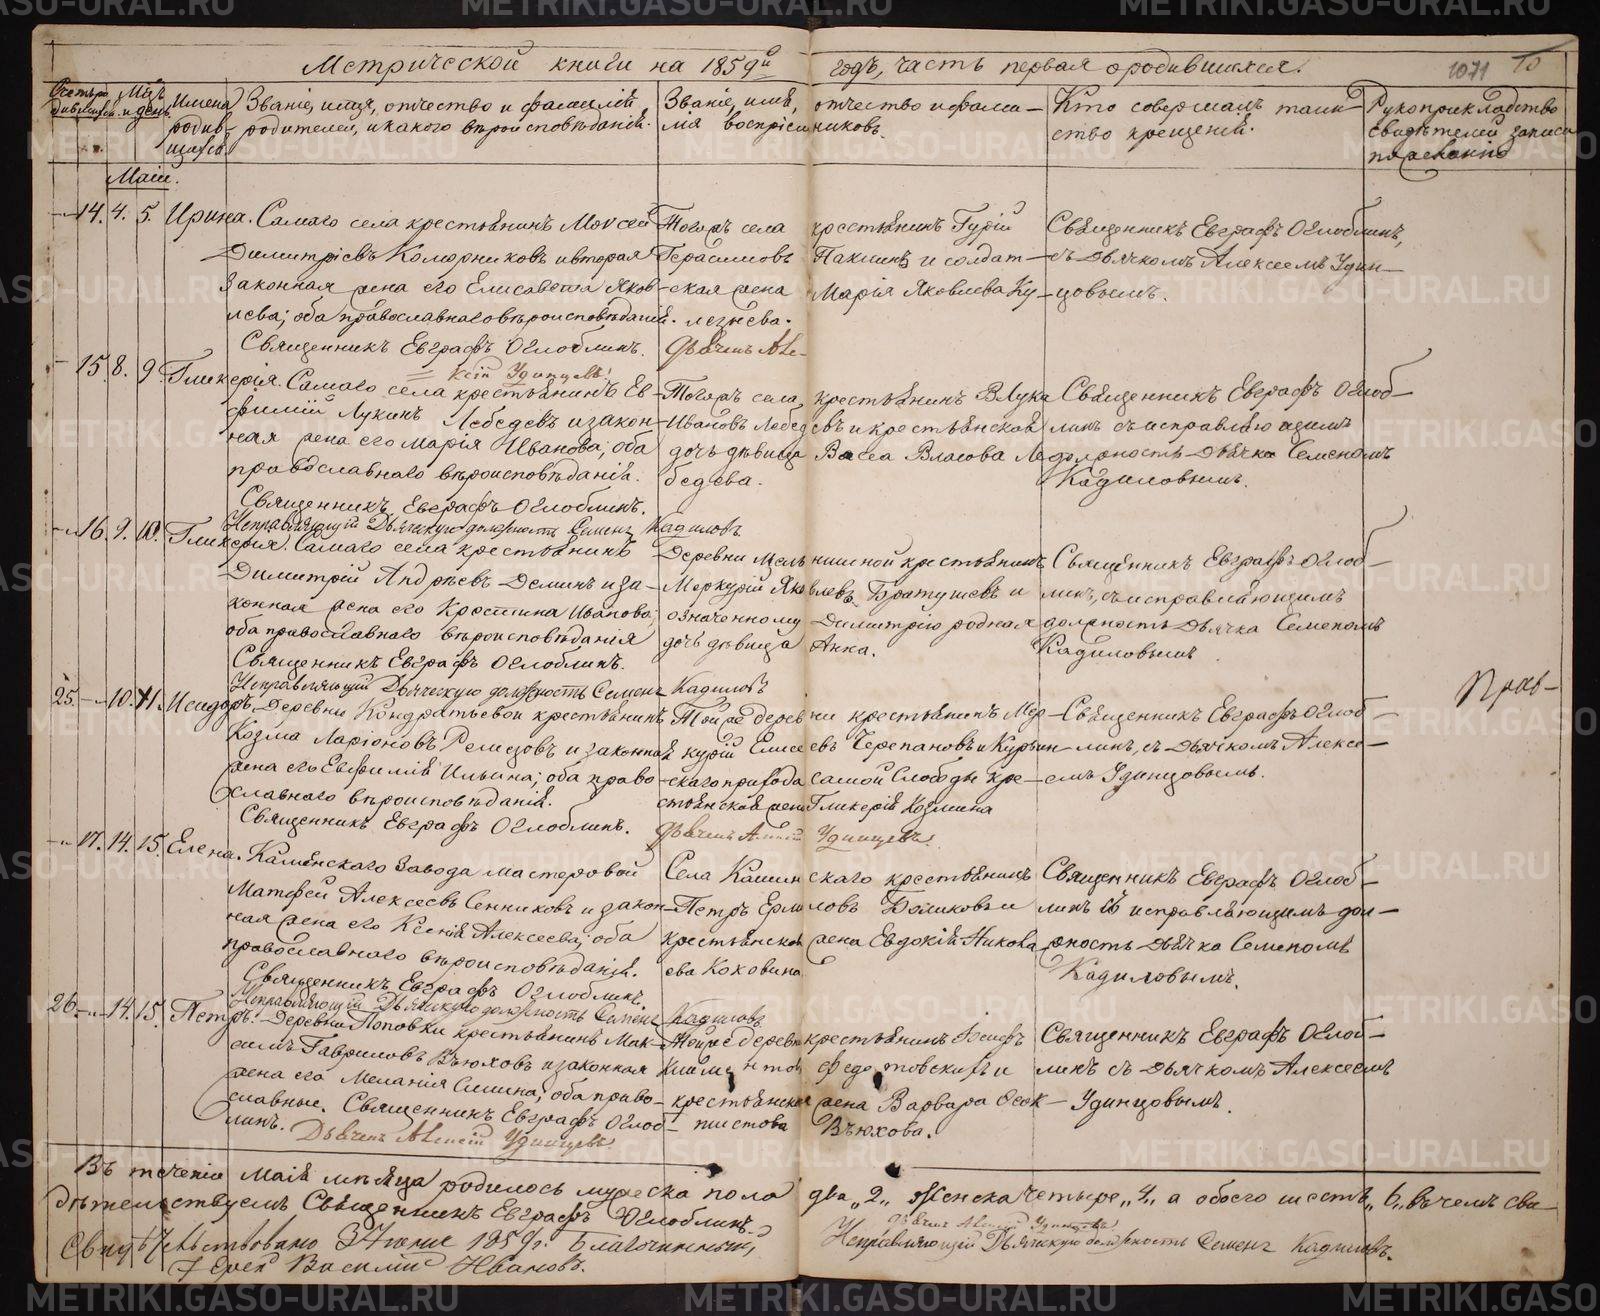 Метрической книги на 1859й годъ, часть первая о родившихся.
1071
Счетъ родившихся.
Мѣсяцъ и день.
Имена родившихся.
Званіе, имя, отчество и фамилія
родителей, и какого вѣроисповѣданія.
Званіе, имя, отчество и фами-
лія воспріемниковъ.
Кто совершалъ таин-
ство крещенія.
Рукоприкладство
свидѣтелей записи
по желанію
Маій.
14. 4. 5. Ирина. Самаго села крестьянинъ Моvсей
Димитріевъ Коморниковъ и вторая
законная жена его Елисавета Яков-
лева; оба православнаго вѣроисповѣданія.
Священникъ Евграфъ Оглоблинъ.
Дьячекъ Алексій Удинцевъ.
Тогожъ села крестьянинъ Гурій
Герасимовъ Пахминъ и солдат-
ская жена Марія Яковлева Ку-
лезнева.
Священникъ Евграфъ Оглоблинъ,
съ дьячкомъ Алексеемъ Удин-
цовымъ.
15. 8. 9. Гликерія. Самаго села крестьянинъ Ев-
фимій Лукинъ Лебедевъ и закон-
ная жена его Марія Иванова; оба
православнаго вѣроисповѣданія.
Священникъ Евграфъ Оглоблинъ.
Исправляющій Дьяческую должность Семенъ Кадиловъ.
Тогожъ села крестьянинъ Лука
Ивановъ Лебедевъ и крестьянская
дочь дѣвица Васса Власова Ле-
бедева.
Священникъ Евграфъ Оглоб-
линъ съ исправляющимъ
должность дьячка Семеномъ
Кадиловымъ.
16. 9. 10. Гликерія. Самаго села крестьянинъ
Димитрій Андреевъ Деминъ и за-
конная жена его Христина Иванова;
оба православнаго вѣроисповѣданія
Священникъ Евграфъ Оглоблинъ.
Исправляющій Дьяческую должность Семенъ Кадиловъ
Деревни Мельнишной крестьянинъ
Меркурій Яковлевъ Братушевъ и
означенному Димитрію родная
дочь дѣвица Анна.
Священникъ Евграфъ Оглоб-
линъ, съ исправляющимъ
должность дьячка Семеномъ
Кадиловымъ.
25. 10. 11. Исидоръ. Деревни Кондратьевой крестьянинъ
Козма Ларіоновъ Ремезовъ и законная
жена его Евфимія Ильина; оба право-
славнаго вѣроисповѣданія.
Священникъ Евграфъ Оглоблинъ.
Дьячекъ Алексій Удинцевъ.
Тойже деревни крестьянинъ Мер-
курій Елисеевъ Черепановъ и Курьин-
скаго прихода самой Слободы кре-
стьянская жена Гликерія Козмина
Священникъ Евграфъ Оглоб-
линъ, съ дьячкомъ Алексе-
емъ Удинцовымъ.
Прав-
17. 14. 15. Елена. Каменскаго Завода мастеровой
Матфей Алексеевъ Сенниковъ и закон-
ная жена его Ксенія Алексеева; оба
православнаго вѣроисповѣданія.
Священникъ Евграфъ Оглоблинъ.
Исправляющій Дьяческую должность Семенъ Кадиловъ
Села Кашинскаго крестьянинъ
Петръ Ермиловъ Боликовъ и
крестьянская жена Евдокія Никова
ева Коковина
Священникъ Евграфъ Оглоб-
линъ съ исправляющимъ дол-
жность дьячка Семеномъ
Кадиловымъ.
26. 14. 15. Петръ. Деревни Поповки крестьянинъ Мак-
симъ Гавриловъ Вьюховъ и законная
жена его Меланія Симина; оба право-
славные. Священникъ Евграфъ Оглоб-
линъ. Дьячекъ Алексій Удинцевъ.
Тойже деревни крестьянинъ Іосифъ
Климентовъ Федотовскихъ и
крестьянская жена Варвара Феок-
тистова Вьюхова.
Священникъ Евграфъ Оглоб-
линъ съ дьячкомъ Алексеемъ
Удинцовымъ.
Въ теченіи маія мѣсяца родилось мужеска пола два „2„ женска четыре „4„ а обоего шесть „6„ въ чемъ сви-
дѣтельствуемъ Священникъ Евграфъ Оглоблинъ.
Дьячекъ Алексій Удинцевъ.
Исправляющій Дьяческую должность Семенъ Кадиловъ.
Свидѣтельствовано 3 Іюние 1859г. Благочинный,
Іерей Василій Ивановъ.
METRIKI.GASO-URAL.RU